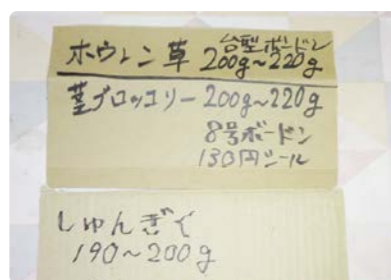 台型ボードン
ホウレン草 200g~220g
茎ブロッコリー 200g~220g
8号ボードン
130円シール
しゅんぎく
190~200g